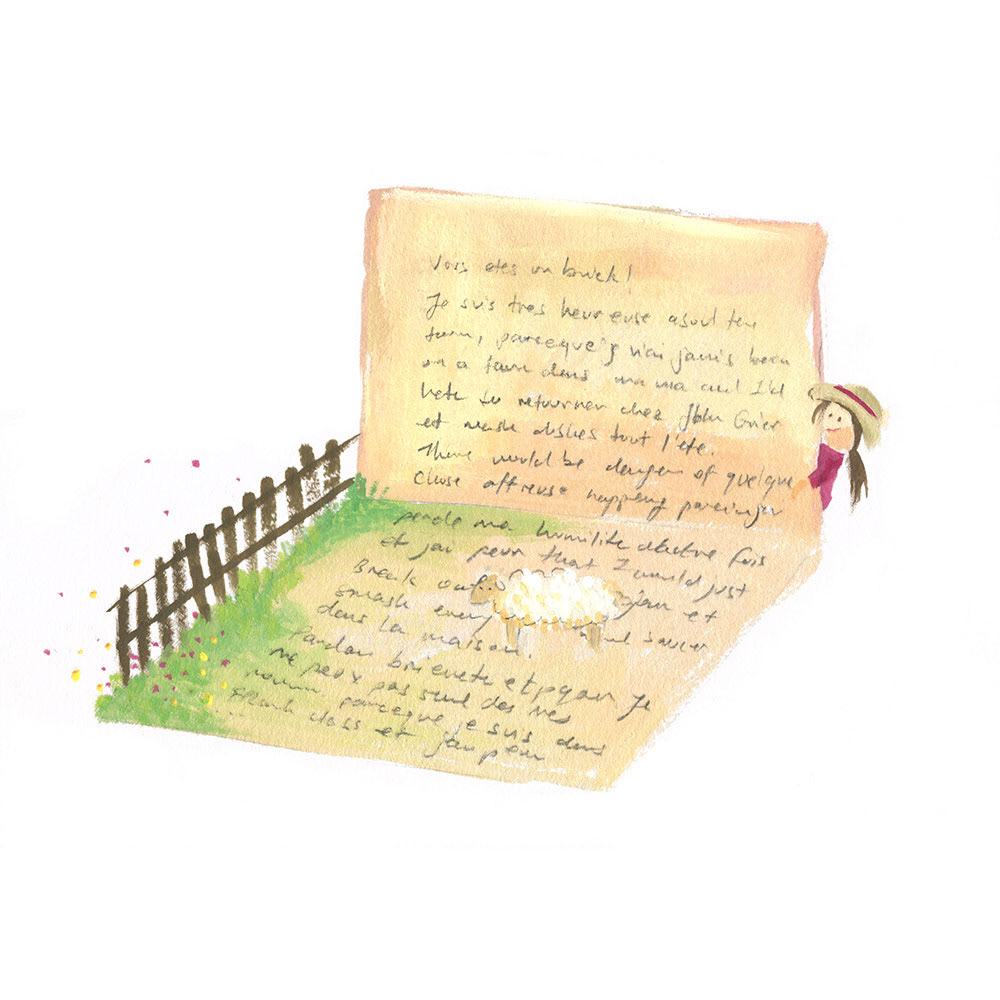 Vous etes un brick!
Je suis tres heureuse about the
farm, parceque je n'ai jamais been
on a farm dans ma vie and I'd
hate to retourner chez John Grier
et wash dishes tout l'ete.
There would be danger of quelque
chose affreuse happening parceque j'ai
perdue ma humilite d'autre fois
et j'ai peur that I would just
Break out
smash every saucer
dans la maison.
Pardon brievete et paper Je
ne peux pas send des mes
parceque je suis dans
French class et j'ai peur